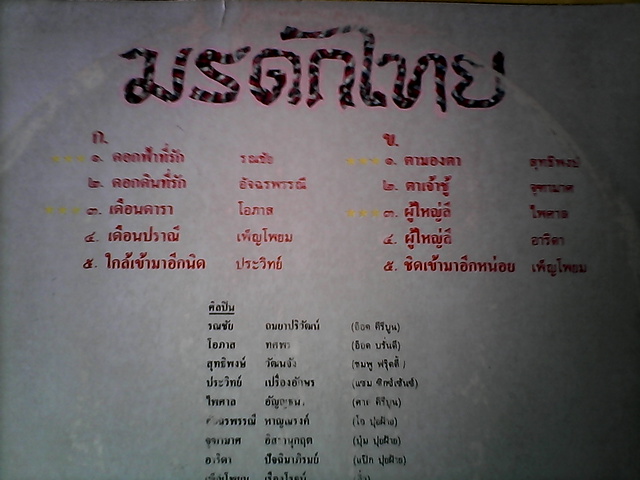 มรดกไทย
ก.
๑. ดอกฟ้าที่รัก รณชัย
๒. ดอกดินที่รัก อัจฉรพรรณี
๓. เดือนดารา โอภาส
๔. เดือนปราณี เพ็ญโพยม
๕. ใกล้เข้ามาอีกนิด ประวิทย์
ข.
๑. ตามองตา สุทธิพงษ์
๒. ตาเจ้าชู้ จุฑามาศ
๓. ผู้ใหญ่ลี ไพศาล
๔. ผู้ใหญ่ลี อาริดา
๕. ชิดเข้ามาอีกหน่อย เพ็ญโพยม
ศิลปิน
รณชัย ถมยาปริวัฒน์ (อ๊อด คีรีบูน)
โอภาส ทศพร (อ๊อด บรั่นดี)
สุทธิพงษ์ วัฒนจัง (ชมพู ฟรุ๊ตตี้)
ประวิทย์ เปรื่องอักษร (แซม ซิกซ์เซ้นซ์)
ไพศาล (ศาล คีรีบูน)
อัจฉรพรรณี หาญณรงค์ (โอ ปุยฝ้าย)
จุฑามาศ อิสสานุกฤต (ปุ้ม ปุยฝ้าย)
อาริดา ปัจฉิมาภิรมย์ (แป๊ก ปุยฝ้าย)
เพ็ญโพยม เรืองโรจน์